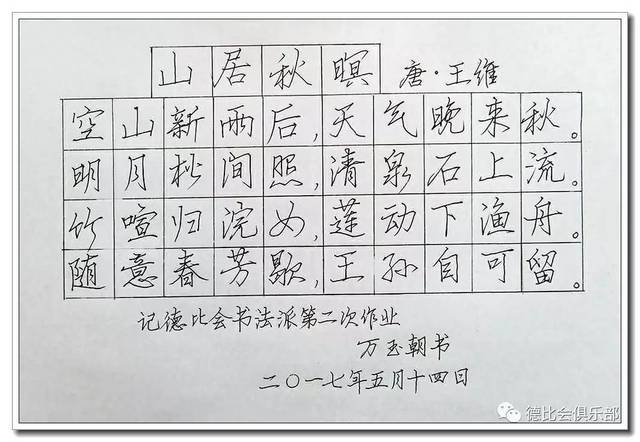 山居秋暝 唐·王维
空山新雨后,天气晚来秋。
明月松间照,清泉石上流。
竹喧归浣女,莲动下渔舟。
随意春芳歇,王孙自可留。
记德比会书法派第二次作业
万玉朝书
二〇一七年五月十四日
德比会俱乐部